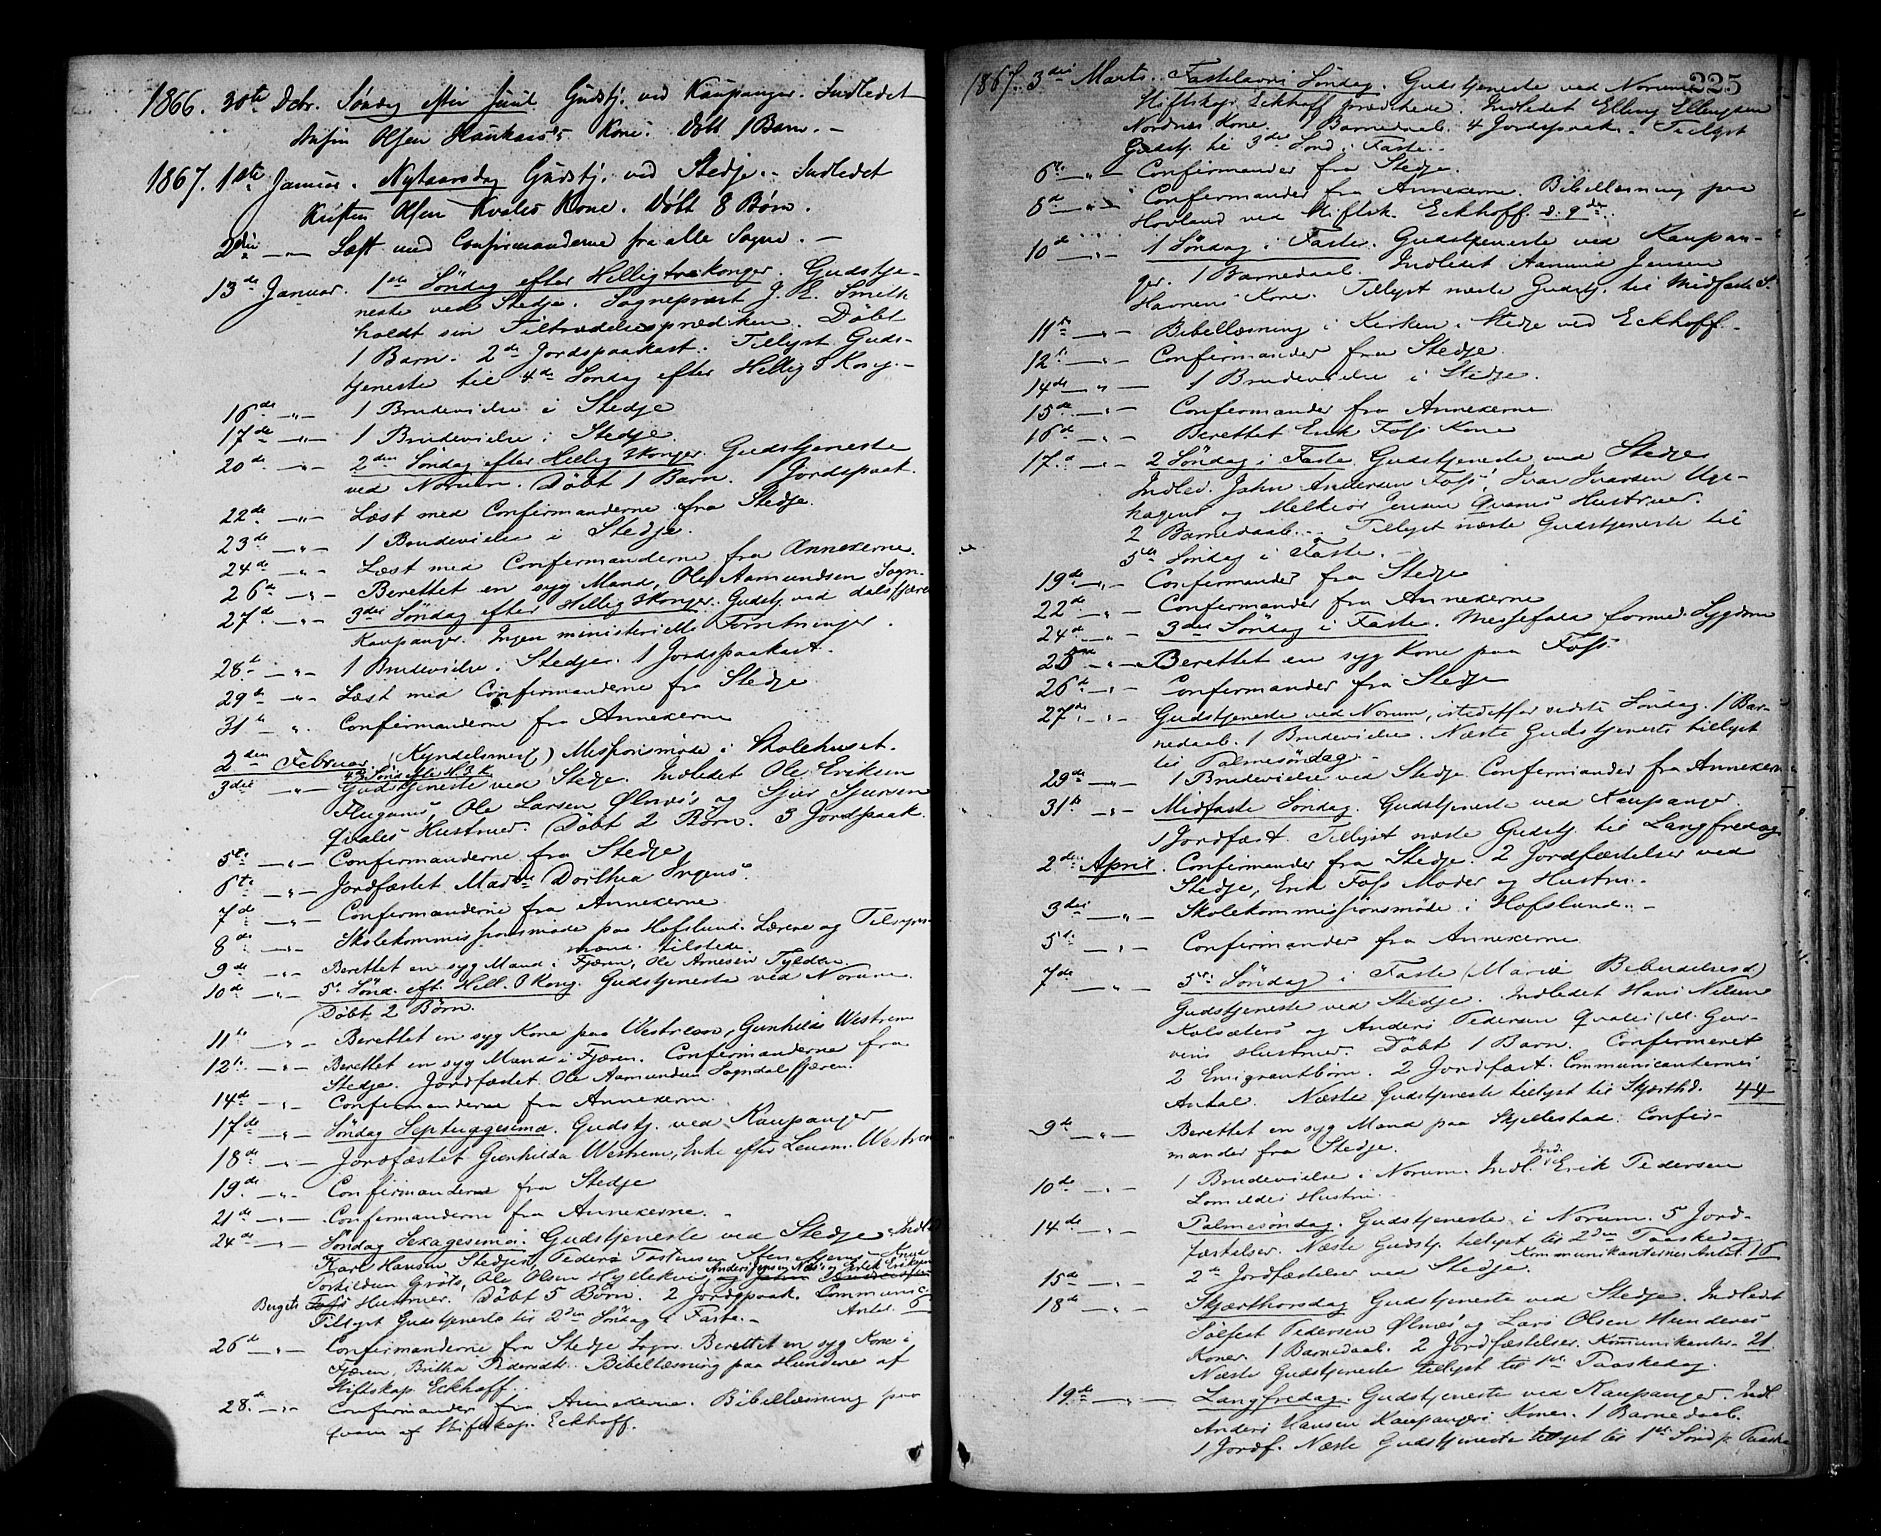 1866. 30te Dcbr. Søndag efter Juul Gudstj. ved Kaupanger. Indledet
Olsen Kone. Døbt 1 Barn. –
1867. 1ste Januar. Nytaarsdag Gudstj. ved Stedje. – Indledet
Kristen Olsen Kvales Kone. Døbt 8 Børn.
2den – „ – Læst med Confirmanderne fra alle Sogne. –
13de Januar. 1ste Søndag efter Helligtrekonger. Gudstje-
neste ved Stedje. Sogneprest J. Smith
holdt sin Tiltrædelsesprædiken. Døbt
1 Barn. 2de Jordspaakast. Tillyst Guds-
tjeneste til 4de Søndag efter Hellig 3 Kong. –
16de – „ – 1 Brudevielse i Stedje
17de – „ – 1 Brudevielse i Stedje.
20de – „ – 2den Søndag efter Hellig 3konger. Gudstjeneste
ved Norum. Døbt 1 Barn. 1 Jordspaak.
22de – „ – Læst med Confirmanderne fra Stedje.
23de – „ – 1 Brudevielse i Stedje.
24de – „ – Læst med Confirmanderne fra Annexerne.
26de – „ – Berettet en syg Mand, Ole Aamundsen Sogn-
27de – „ – 3die Søndag efter Hellig 3konger. Gudstj. ved dalsfjæren
Kaupanger. Ingen ministerielle Forretninger.
28de – „ – 1 Brudevielse. Stedje. 1 Jordspaakast.
29de – „ – Læst med Confirmanderne fra Stedje
31te „ Confirmanderne fra Annexerne
2den Februar. (Kyndelsmesse) Missionsmøde i Skolehuset.
4de Sønd efter H.3.K.
3die – „ – Gudstjeneste ved Stedje. Indledet Ole Eriksen
Flugums, Ole Larsen Ølnæs og Sjur Sjursen
Qvales Hustruer. Døbt 2 Børn. 3 Jordspaak.
5te – „ – Confirmanderne fra Stedje
6te – „ – Jordfæstet Dorthea
7de – „ – Confirmanderne fra Annexerne
8de – „ – Skolekommissionsmøde paa Hofslund. Lærerne og Tilsyns-
mænd tilstede.
9de – „ – Berettet en syg Mand i Fjæren, Ole Arnesen
10de – „ – 5te Sønd. eft. Hell. 3 Kong. Gudstjeneste ved Norum.
Døbt 2 Børn.
11te – „ – Berettet en syg Kone paa Westrem, Gunhilde Westrem
12te – „ – Berettet en syg Mand i Fjæren. Confirmanderne fra
Stedje. Jordfæstet Ole Aamundsen Sogndalsfjæren.
14de – „ – Confirmanderne fra Annexerne.
17de – „ – Søndag Septuagesima. Gudstj. ved Kaupanger
18de – „ – Jordfæstet Gunhilda Westrem, Enke efter Westrem
19de – „ – Confirmanderne fra Stedje
21de – „ – Confirmanderne fra Annexerne. –
24de – „ – Søndag Sexagesima. Gudstjeneste ved Stedje. Indled
Karl Hansen Stedjes, Peders Knud
Torkildsen Ole Olsen Anders Jensen Næs's og Erik Eriksen
Bergets Hustruer. Døbt 5 Børn. 2 Jordspaak. Communic.
Tillyst Gudstjeneste til 2den Søndag i Faste. – Antal 6
26de – „ – Confirmanderne fra Stedje Sogn. Berettet en syg Kone i
Fjæren, Britha Pedersdtr. Bibellæsning paa Hundene af
Stiftskap. Eckhoff.
28de – „ – Confirmander fra Annexerne. Bibellæsning paa
Qvam af Stiftskap. Eckhoff.
225
1867. 3die Marts. Fastelavns Søndag. Gudstjeneste ved Norum.
Stiftskap. Eckhoff prædikede. Indledet Elling Ellingsen
Nordnes Kone. 1 Barnedaab. 4 Jordspaak. Tillyst
Gudstj. til 3de Sønd. i Faste. –
6te – „ – Confirmander fra Stedje.
8de – „ – Confirmander fra Annexerne. Bibellæsning paa
Hovland ved Stiftsk. Eckhoff d. 9de.
10de – „ – 1 Søndag i Faste. Gudstjeneste ved Kaupan-
ger. 1 Barnedaab. Indledet Aamund Jensen
Havnens Kone. Tillyst næste Gudstj. til Midfaste S.
11te – „ – Bibellæsning i Kirken i Stedje ved Eckhoff. –
12te – „ – Confirmander fra Stedje.
14de – „ – 1 Brudevielse i Stedje.
15de – „ – Confirmander fra Annexerne
16de – „ – Berettet Erik Foss Kone
17de – „ – 2 Søndag i Faste. Gudstjeneste ved Stedje
Indled. John Andersen Foss', Ivar Ivarsen Uge-
hagens og Melkior Jensen Qvams Hustruer.
2 Barnedaab. – Tillyst næste Gudstjeneste til
5te Søndag i Faste. –
19de – „ – Confirmander fra Stedje
22de – „ – Confirmander fra Annexerne
24de – „ – 3die Søndag i Faste. Messefald formed. Sygdom
25de – „ – Berettet en syg Kone paa Foss
26de – „ – Confirmander fra Stedje
27de – „ – Gudstjeneste ved Norum, istedetfor sidste Søndag. 1 Bar-
nedaab. 1 Brudevielse. Næste Gudstjeneste tillyst
til Palmesøndag. –
29de – „ – 1 Brudevielse ved Stedje. Confirmander fra Annexerne
31te – „ – Midfaste Søndag. Gudstjeneste ved Kaupanger.
1 Jordfæst. Tillyst næste Gudstj. til Langfredag
2den April. Confirmander fra Stedje. 2 Jordfæstelser ved
Stedje, Erik Foss Moder og Hustru. –
3die – „ – Skolekommissionsmøde i Hofslund. –
5te – „ – Confirmander fra Annexerne
7de – „ – 5te Søndag i Faste (Mariæ Bebudelsesd.)
Gudstjeneste ved Stedje. Indledet Hans Nilsen
Kolsæters og Anders Pedersen Qvales
Hustruer. Døbt 1 Barn. Confirmeret
2 Emigrantbørn. 2 Jordfæst. Communicanternes
Antal. Næste Gudstjeneste tillyst til Skjærthd. 44
9de – „ – Berettet en syg Mand paa Skjellestad. Confir-
mander fra Stedje.
10de – „ – 1 Brudevielse i Norum. Indl. Erik Pedersen
Lomeldes Hustru.
14de – „ – Palmesøndag. Gudstjeneste i Norum. 5 Jord-
fæstelser. Næste Gudstj. tillyst til 2den Paaskedag
Kommunikanternes Antal 16
15de – „ – 2de Jordfæstelser ved Stedje.
18de – „ – Skjærthorsdag Gudstjeneste ved Stedje. Indledet
Sølfest Pedersen Ølnæs' og Lars Olsen Hundenes
Koner. 1 Barnedaab. 2 Jordfæstelser. Kommunikanter. 21
Næste Gudstjeneste tillyst til 1ste Paaskedag.
19de – „ – Langfredag. Gudstjeneste ved Kaupanger. Indl.
Anders Hansen Kaupangers Kone. 1 Barnedaab.
1 Jordf. Næste Gudstjeneste tillyst til 1ste Sønd p. Paaske